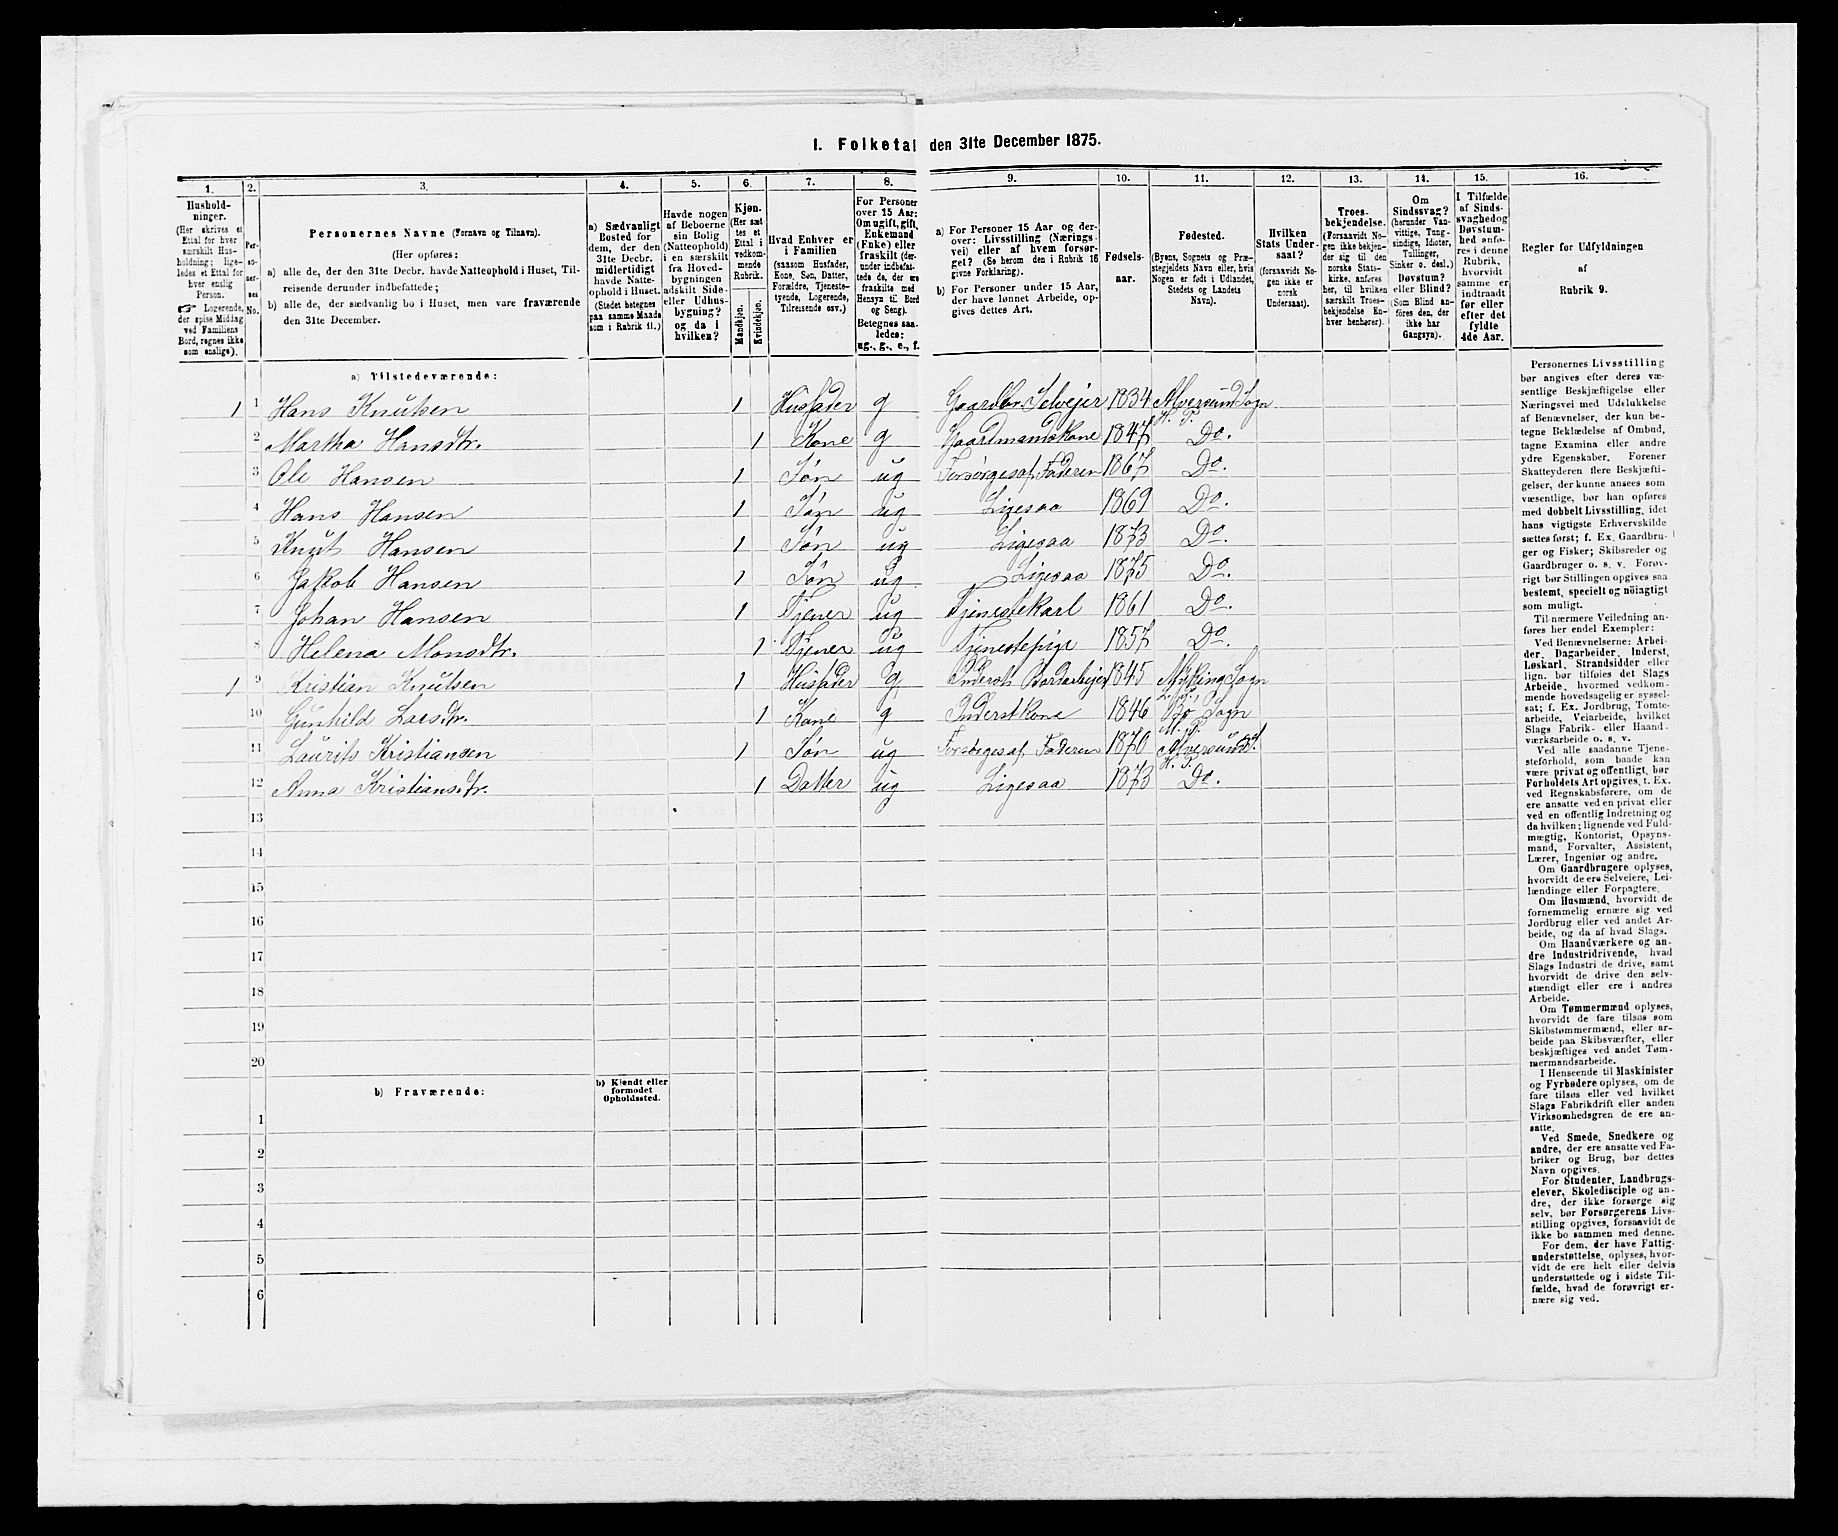 I. Folketal den 31te December 1875.
1. 2. 3. 4. 5. 6. 7. 8. 9. 10. 11. 12. 13. 14. 15. 16.
Hushold-
ninger.
(Her skrives et
Ettal for hver
særskilt Hus-
holdning; lige-
ledes et Ettal for
hver enslig
Person.
☞ Logerende,
der spise Middag
ved Familiens
Bord, regnes ikke
som enslige).
Per-
so-
ner-
nes
No.
Personernes Navne (Fornavn og Tilnavn).
(Her opføres:
a) alle de, der den 31te Decbr. havde Natteophold i Huset, Til-
reisende derunder indbefattede;
b) alle de, der sædvanlig bo i Huset, men vare fraværende
den 31te December.
a) Sædvanligt
Bosted for
dem, der den
31te Decbr.
midlertidigt
havde Natte-
ophold i Huset.
(Stedet betegnes
paa samme Maade
som i Rubrik 11.)
Havde nogen
af Beboerne
sin Bolig
(Natteophold)
i en særskilt
fra Hoved-
bygningen
adskilt Side-
eller Udhus-
bygning?
og da i
hvilken?
Kjøn.
(Her sæt
tes et
Ettal i
vedkom-
mende
Rubrik.
Mandkjøn.
Kvindekjøn.
Hvad Enhver er
i Familien
(saasom Husfader,
Kone, Søn, Datter,
Forældre, Tjeneste-
tyende, Logerende,
Tilreisende osv.)
For Personer
over 15 Aar:
Om ugift, gift,
Enkemand
(Enke) eller
fraskilt (der-
under indbefat-
tede de, der ere
fraskilte med
Hensyn til Bord
og Seng).
Betegnes saa-
ledes:
ug., g., e., f.
a) For Personer 15 Aar og der-
over: Livsstilling (Nærings-
vei) eller af hvem forsør-
get? (Se herom den i Rubrik 16
givne Forklaring).
b) For Personer under 15 Aar,
der have lønnet Arbeide, op-
gives dettes Art.
Fødsels-
aar.
Fødested.
(Byens, Sognets og Præ-
stegjeldets Navn eller, hvis
Nogen er født i Udlandet,
Stedets og Landets
Navn).
Hvilken
Stats Under-
saat?
(forsaavidt No-
gen ikke er
norsk
Undersaat).
Troes-
bekjendelse.
(Forsaavidt No-
gen ikke bekjen-
der sig til den
norske Stats-
kirke, anføres
her, til hvilken
særskilt Troes-
bekjendelse En-
hver henhører).
Om
Sindssvag?
(herunder Van-
vittige, Tung-
sindige, Idioter,
Tullinger,
Sinker o. desl.)
Døvstum?
eller Blind?
(Som Blind an-
føres den, der
ikke har
Gangsyn).
I Tilfælde
af Sinds-
svaghed og
Døvstum-
hed anfø-
res i denne
Rubrik,
hvorvidt
samme er
indtraadt
før eller
efter det
fyldte
4de Aar.
Regler for Udfyldningen
af
Rubrik 9.
a) Tilstedeværende:
1 1 Hans Knutsen 1 Husfader g Gaardbr. Selvejer 1834 Alversund Sogn
H. P.
2 Martha Hansdtr. 1 Kone g Gaardmandskone 1847 Do.
3 Ole Hansen 1 Søn ug Forsørges af Faderen 1867 Do.
4 Hans Hansen 1 Søn ug Ligesaa 1869 Do.
5 Knut Hansen 1 Søn ug Ligesaa 1873 Do.
6 Jakob Hansen 1 Søn ug Ligesaa 1875 Do.
7 Johan Hansen 1 Tjener ug Tjenestekarl 1861 Do.
8 Helena Monsdtr. 1 Tjener ug Tjenestepige 1857 Do.
1 9 Kristian Knutsen 1 Husfader g Inderst 1845 Sogn
10 Gunhild Larsdtr. 1 Kone g Inderstkone 1846 Bø Sogn
11 Laurits Kristiansen 1 Søn ug Forsørges af Faderen 1870 Alversund S.
H. P.
12 Anna Kristiansdtr. 1 Datter ug Ligesaa 1873 Do.
13
14
15
16
17
18
19
20
b) Fraværende:
b) Kjendt eller
formodet
Opholdssted.
1
2
3
4
5
6
Personernes Livsstilling
bør angives efter deres væ-
sentlige Beskjæftigelse eller
Næringsvei med Udelukkelse
af Benævnelser, der kun be-
tegne Beklædelse af Ombud,
tagne Examina eller andre
ydre Egenskaber. Forener
Skatteyderen flere Beskjæfti-
gelser, der kunne ansees som
væsentlige, bør han opføres
med dobbelt Livsstilling, idet
hans vigtigste Erhvervskilde
sættes først; f. Ex. Gaardbru-
ger og Fisker; Skibsreder og
Gaardbruger o. s. v. Forøv-
rigt bør Stillingen opgives saa
bestemt, specielt og nöiagtigt
som muligt.
Til nærmere Veiledning an-
føres her endel Exempler:
Ved Benævnelserne: Arbei-
der, Dagarbeider, Inderst,
Løskarl, Strandsidder eller
lign. bør tilføies det Slags
Arbeide, hvormed vedkom-
mende hovedsagelig er syssel-
sat; f. Ex. Jordbrug, Tømte-
arbeide, Veiarbeide, hvilket
Slags Fabrik- eller Haand-
værksarbeide o. s. v.
Ved alle saadanne Tjene-
steforhold, som baade kan
være privat og offentligt, bør
Forholdets Art opgives, t. Ex.
ved Regnskabsførere, om de
ere ansatte ved en privat eller
ved en offentlig Indretning og
da hvilken; lignende ved Fuld-
mægtig, Kontorist, Opsyns-
mand, Forvalter, Assistent,
Lærer, Ingeniør og andre.
Om Gaardbrugere oplyses,
hvorvidt de ere Selveiere, Lei-
lændinge eller Forpagtere.
Om Husmænd, hvorvidt de
fornemmelig ernære sig ved
Jordbrug eller ved andet Ar-
beide, og da af hvad Slags.
Om Haandværkere og an-
dre Industridrivende, hvad
Slags Industri de drive, samt
hvorvidt de drive den selv-
stændigt eller ere i andres
Arbeide.
Om Tømmermænd oplyses,
hvorvidt de fare tilsøs som
Skibstømmermænd, eller ar-
beide paa Skibsværfter, eller
beskjæftiges ved andet Tøm-
mermandsarbeide.
I Henseende til Maskinister
og Fyrbødere oplyses, om de
fare tilsøs eller ved hvilket
Slags Fabrikdrift eller anden
Virksomhedsgren de ere an-
satte.
Ved Smede, Snedkere og
andre, der ere ansatte ved Fa-
briker og Brug, bør dettes
Navn opgives.
For Studenter, Landbrugs-
elever, Skoledisciple og an-
dre, der ikke forsørge sig
selv, bør Forsørgerens Livs-
stilling opgives, forsaavidt de
ikke bo sammen med denne.
For dem, der have Fattig-
understøttelse, oplyses, hvor-
vidt de ere helt eller delvis
understøttede og i sidste Til-
fælde, hvad de forøvrigt er-
nære sig ved.